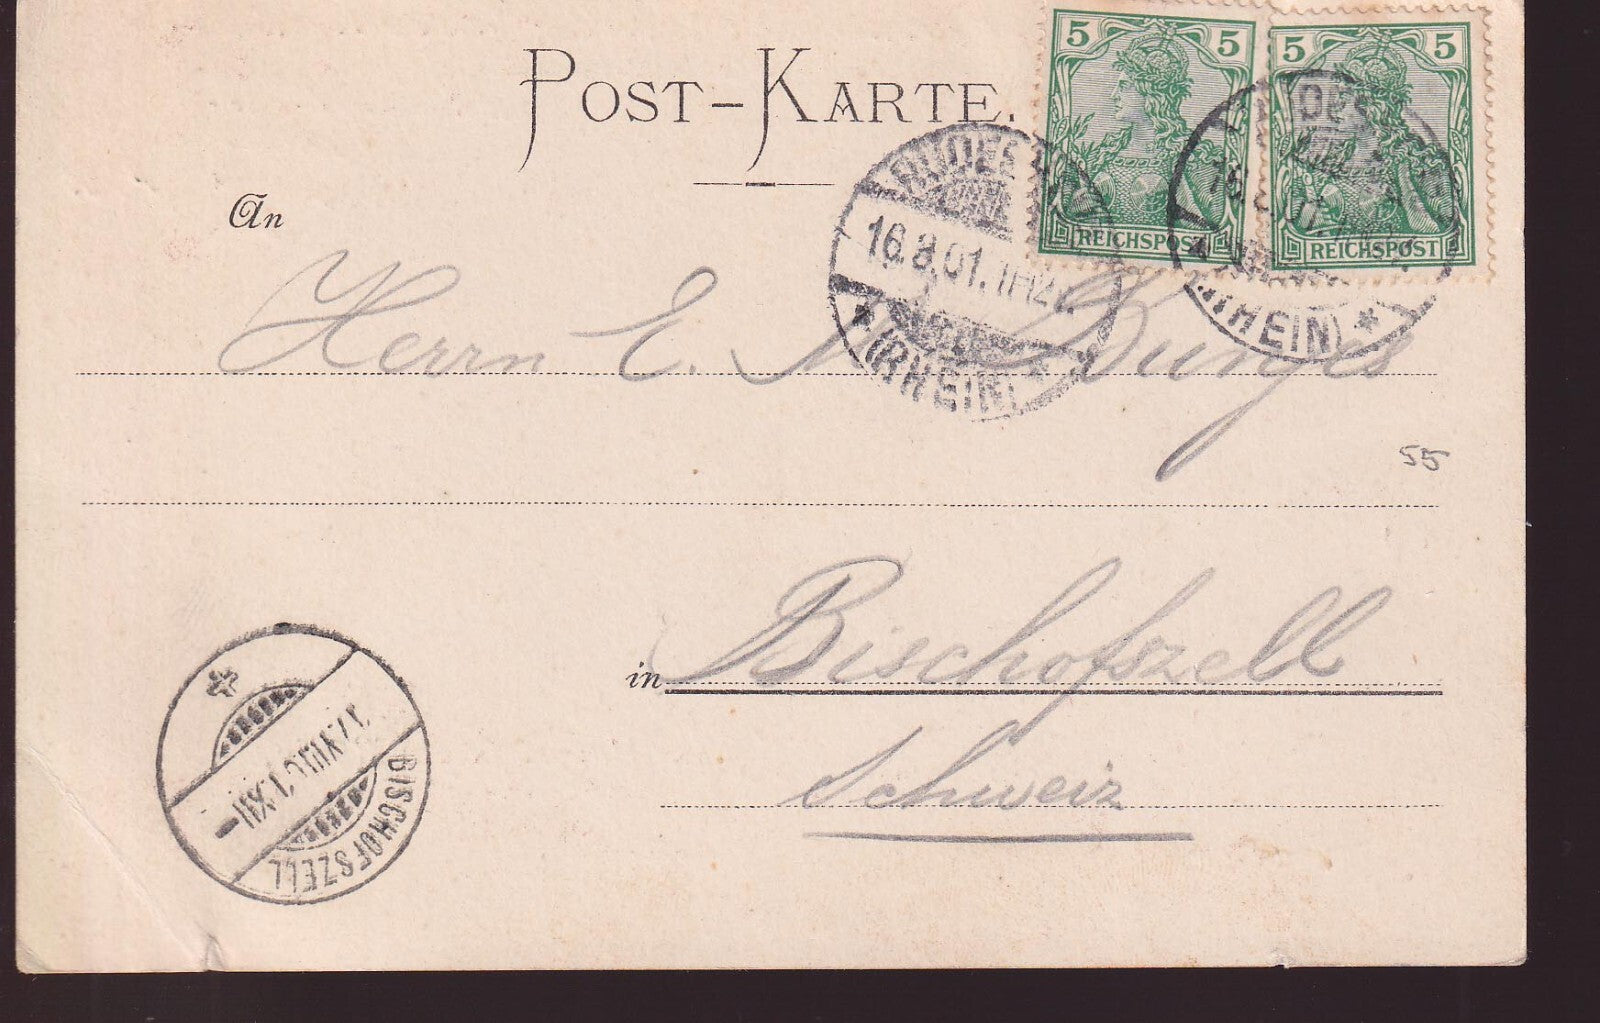 5 5 5 5
POST-KARTE.
REICHSPOST REICHSPOST
16.8.01.
(RHEIN) *
(RHEIN) *
An
Herrn E. Dunges
55
in Bischofszell
Schweiz
BISCHOFSZELL